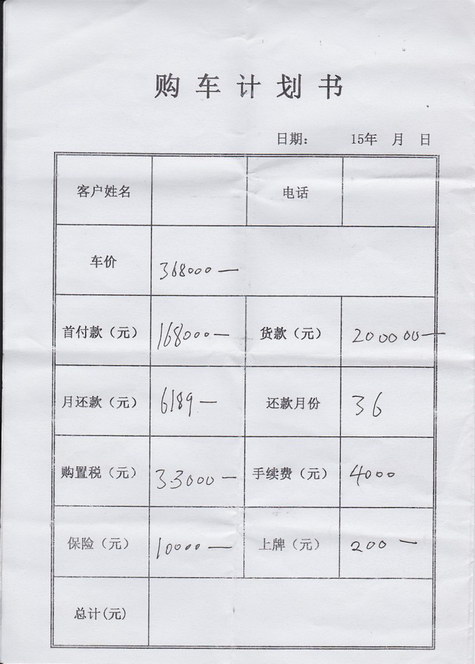 购车计划书
日期： 15年 月 日
客户姓名 电话
车价 368000—
首付款（元） 168000— 货款（元） 200000—
月还款（元） 6189— 还款月份 36
购置税（元） 33000— 手续费（元） 4000
保险（元） 10000— 上牌（元） 200—
总计(元)